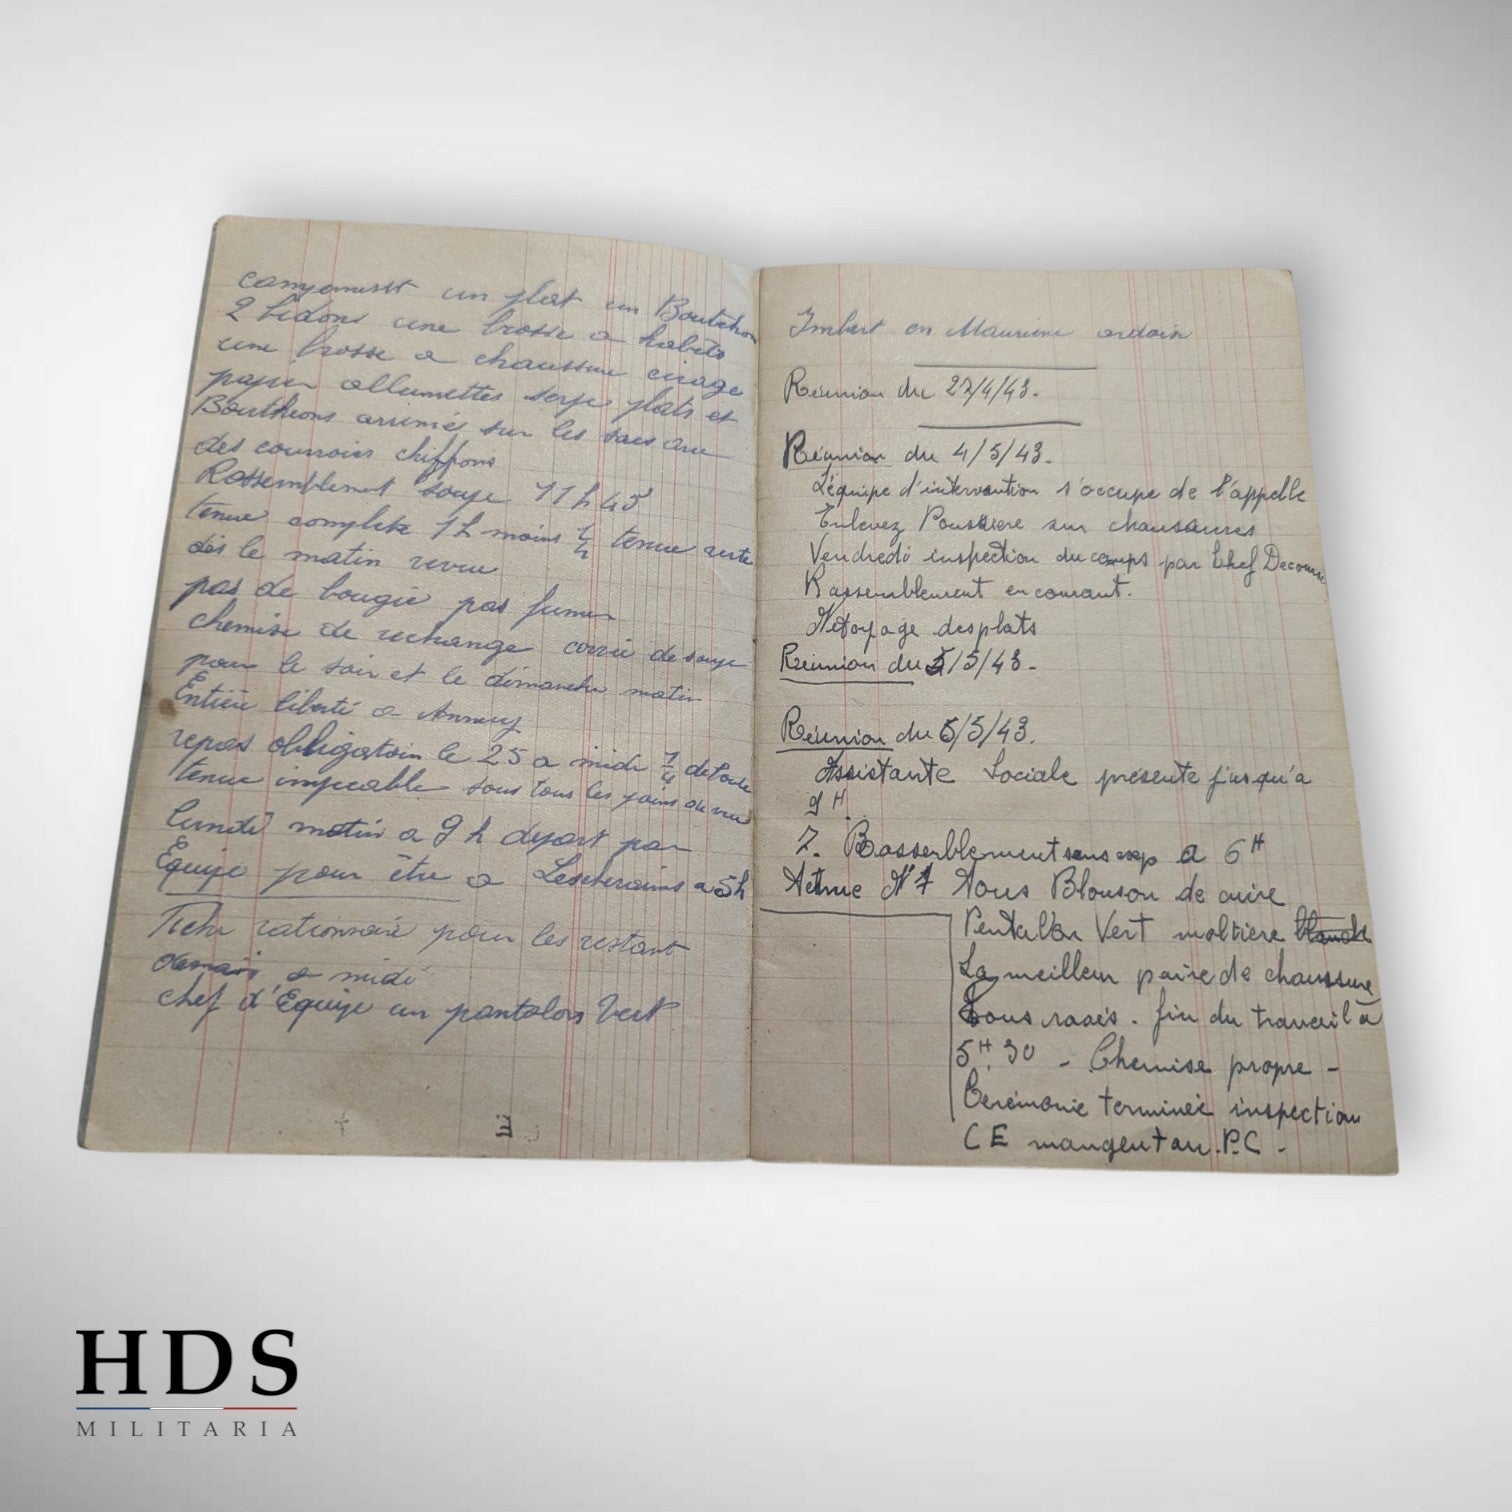 un plat un Bouthéon
2 bidons une brosse a habits
une brosse a chaussure cirage
papier allumettes soupe plats et
Bouthéons arrimés sur les sacs avec
des courroies chiffons
Rassemblement soupe 11 h 45
tenue complète 1 h moins 1/4 tenue verte
dès le matin revue
pas de bougie pas fumer
chemise de rechange de soupe
pour le soir et le dimanche matin
Entière liberté a Annecy
repas obligatoire le 25 a midi 1/4
tenue impecable sous tous les
lundi matin a 9 h départ par
Equipe pour être a Lescheraines a 5 h
rationnaire pour les restant
demain a midi
chef d'Equipe un pantalon Vert
3
Imbert en Maurienne
Réunion du 27/4/43.
Réunion du 4/5/43.
L'équipe d'intervention s'occupe de l'appelle
Enlevez Poussière sur chaussures
Vendredi inspection du camps par Chef
Rassemblement en courant.
Nétoyage des plats
Réunion du 5/5/43.
Réunion du 6/5/43.
Assistante Sociale présente jusqu'a
9H.
7. Rassemblement sans a 6H
N°1 Tous Blouson de cuire
Pentallon Vert moltière blanche
La meilleur paire de chaussure
Tous rasés. fin du travail a
5H.30 - Chemise propre -
Cerémonie terminée inspection
C E mangent au P.C -
HDS
MILITARIA